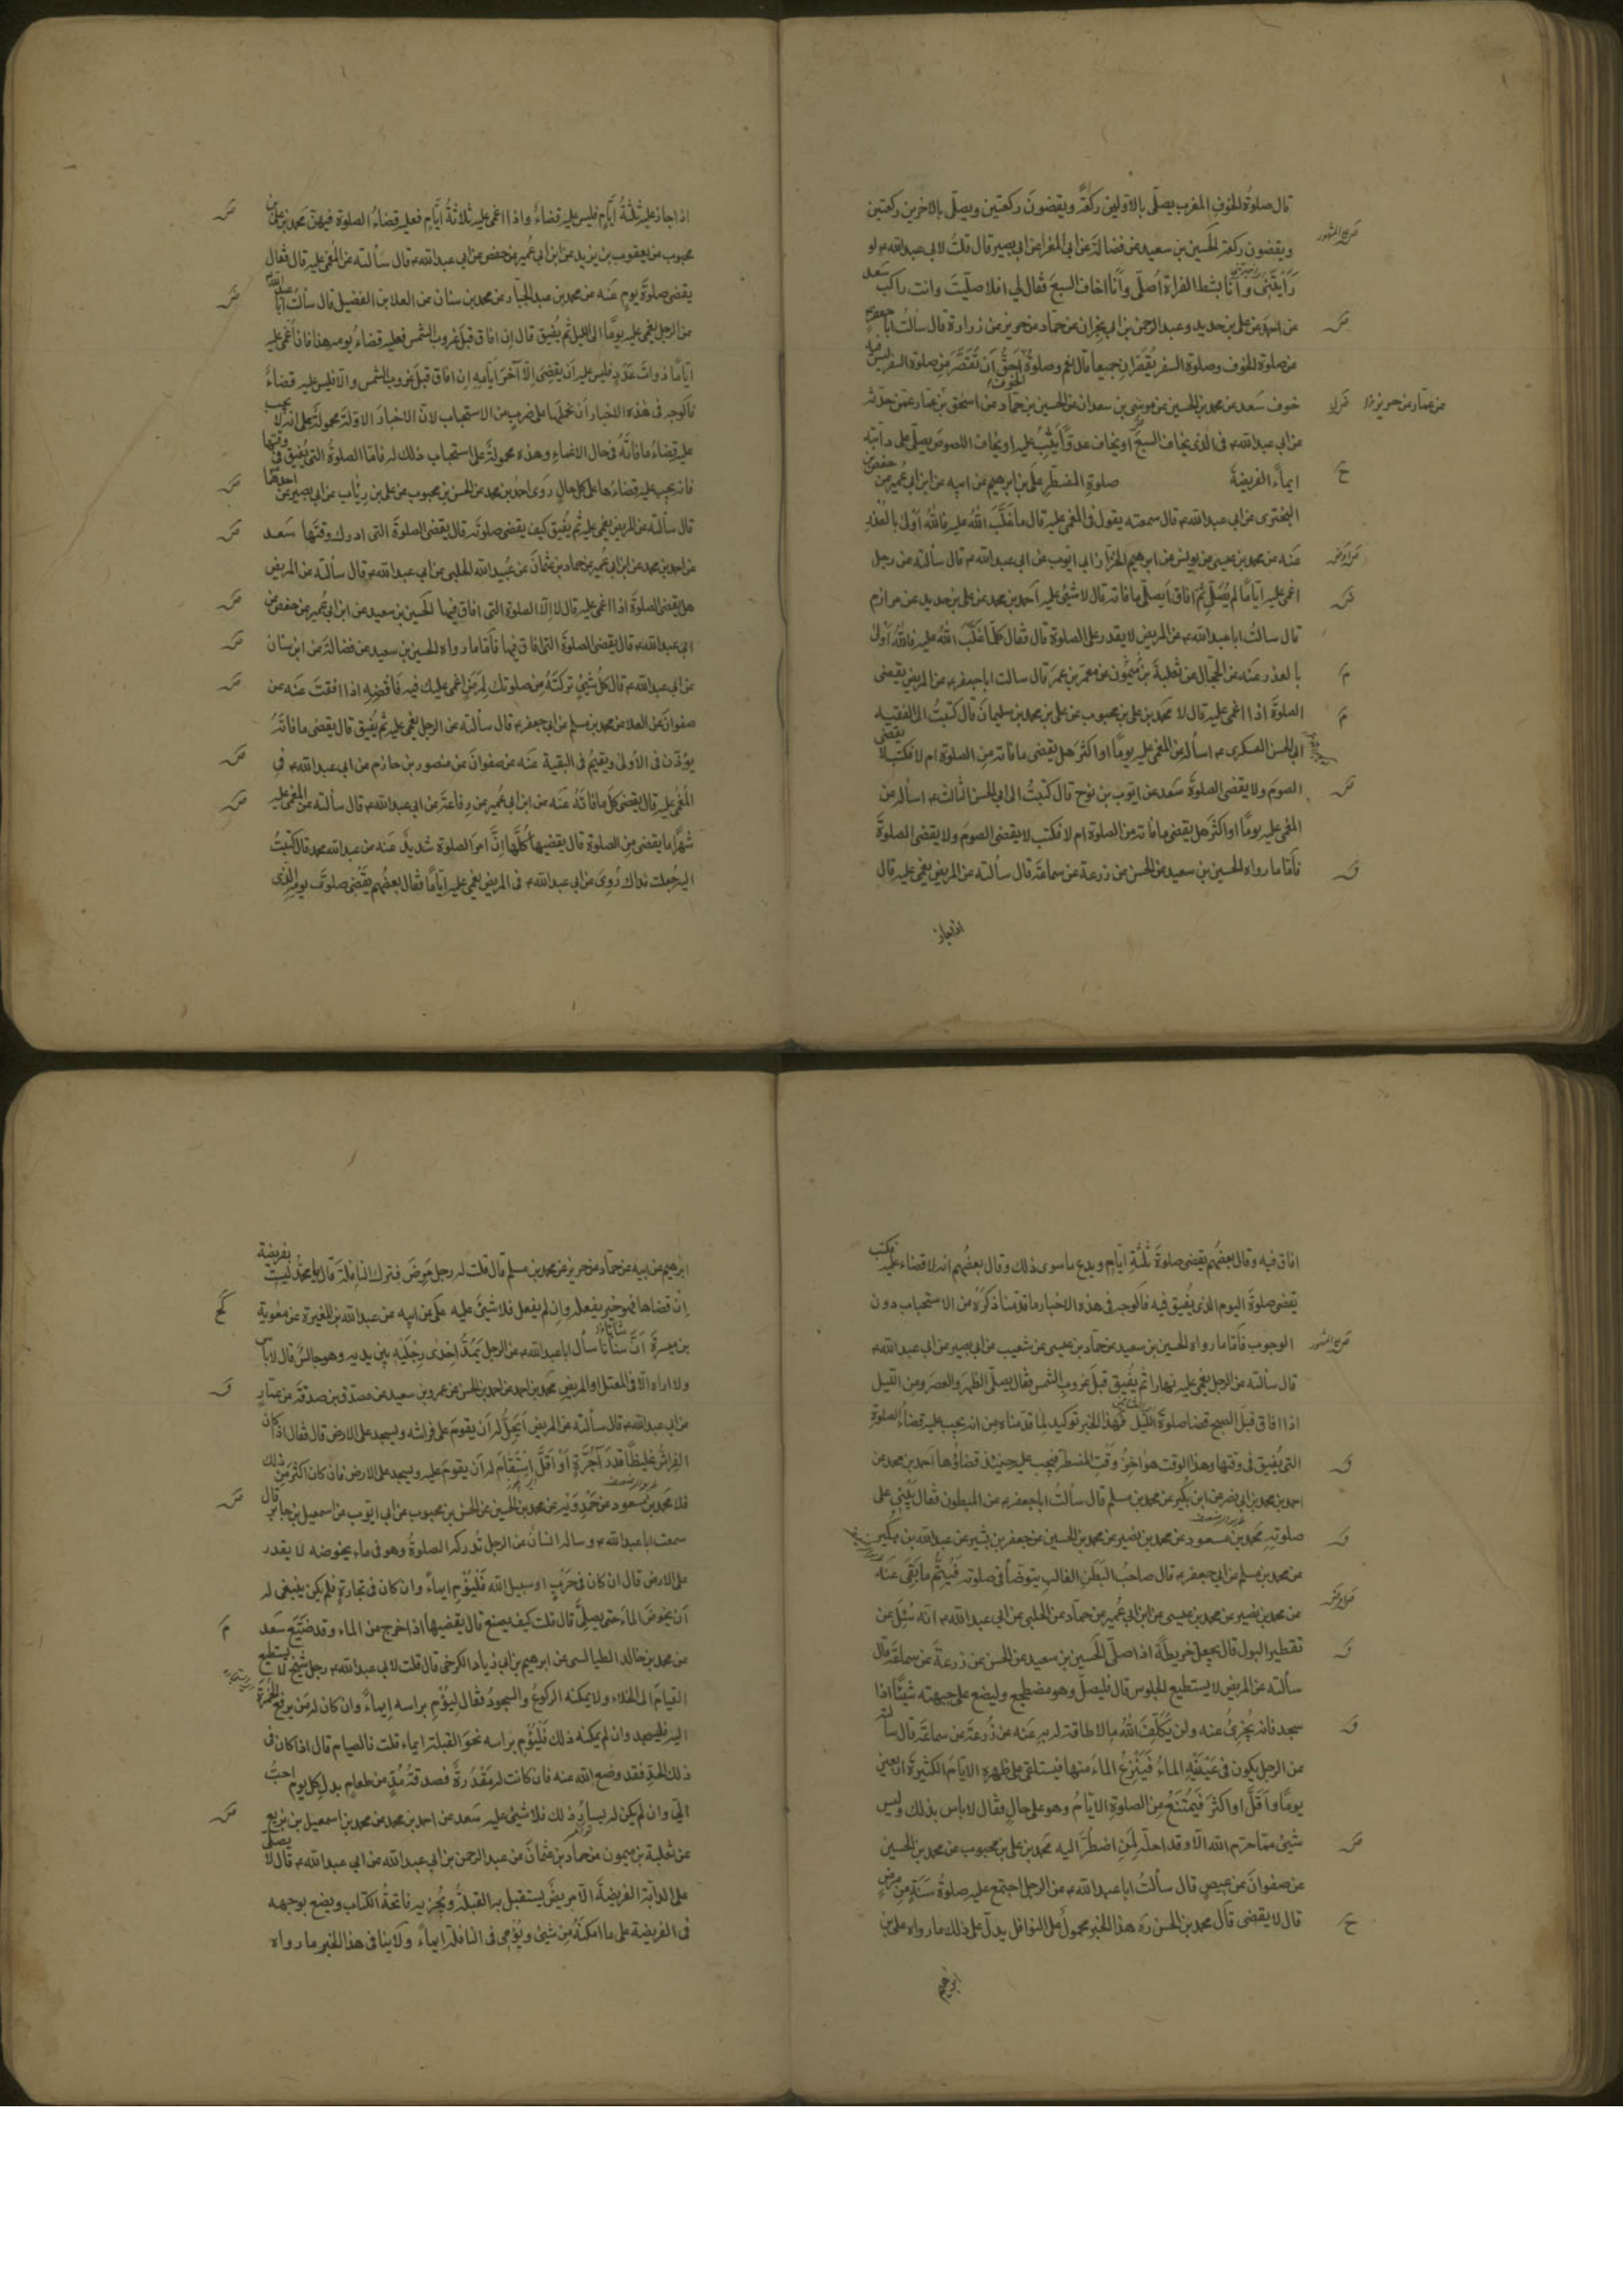 قال صلوة الخوف المغرب يصلّى بالاوّلين ركعة ويقضون ركعتين ويصلّى بالاخرين ركعتين
ويقضون ركعة الحسين بن سعيد عن فضالة عن ابى المغرا عن ابى بصير قال قلت لابى عبدالله ع لو
رَأيْتَنى وأنا بشط الفرات أُصلّى وأنا اخاف السبعَ فقال لي افلا صلّيتَ وانت راكب سَعد
عن احمد عن على بن حديد وعبد الرحمن بن ابى نجران عن حمّاد عن حريز عن زرارة قال سالت ابا جعفر ع
عن صلوة الخوف وصلوة السفر يُقصَران جميعا قال نعم وصلوة الخوف احَقُّ أن تُقَصَّرَ من صلوة السفر ليس فيه
خوف سَعد عن محمد بن الحسين عن موسى بن سعدان عن الحسين بن حمّاد عن اسحق بن عمار عمن حدثه
عن ابى عبدالله ع فى الذى يخاف السبعَ او يخاف عدوّاً يَثِبُ عليه او يخاف اللصوص يصلّى على دابّته
ايماءً الفريضة صلوة المضطرّ على بن ابرهيم عن ابيه عن ابن ابى عُمير عن حفص بن
البخترى عن ابى عبدالله ع قال سمعته يقول فى المغمى عليه قال ما غلَبَ اللهُ عليه فاللهُ أولى بالعُذْرِ
عَنه عن محمد بن عيسى عن يونس عن ابرهيم الخزّاز ابى ايّوب عن ابى عبدالله ع قال سألته عن رجل
اغمى عليه ايّامًا لم يُصَلِّ ثمّ افاق أيصلّى ما فاته قال لا شىءَ عليه احمد بن محمد عن على بن حديد عن مرازم
قال سالتُ ابا عبدالله ع عن المريض لا يقدر على الصلوة قال فقال كلّما غلَبَ اللهُ عليه فاللهُ أولى
بالعذر عَنه عن الحجّال عن ثعلبة بن ميمون عن معمر بن عمرَ قال سالت ابا جعفر ع عن المريض يقضى
الصلوةَ اذا اغمى عليه قال لا محمّد بن على بن محبوب عن على بن محمد بن سليمانَ قال كتبتُ الى الفقيه
ابى الحسن العسكرى ع اسأله عن المغمى عليه يومًا او اكثرَ هل يقضى ما فاته من الصلوة ام لا فكتب لا يقضى
الصومَ ولا يقضى الصلوةَ سَعد عن ايّوب بن نوح قال كتبتُ الى ابى الحسن الثالث ع اسأله عن
المغمى عليه يومًا او اكثرَ هل يقضى ما فاته من الصلوة ام لا فكتب لا يقضى الصومَ ولا يقضى الصلوةَ
فأمّا ما رواه الحسين بن سعيد عن الحسن عن زرعة عن سماعة قال سألته عن المريض يغمى عليه قال
اذا جاز
اذا جاز عليه ثلثةُ ايّامٍ فليس عليه قضاءٌ واذا اغمى عليه ثلاثةَ ايّامٍ فعليه قضاءُ الصلوة فيهنّ محمد بن على بن
محبوب عن يعقوب بن يزيد عن ابن ابى عُمير عن حفص عن ابى عبدالله ع قال سألته عن المُغمى عليه قال فقال
يقضى صلوةَ يومٍ عَنه عن محمد بن عبد الجبّار عن محمد بن سنان عن العلا بن الفضيل قال سألت ابا عبدالله ع
عن الرجل يغمى عليه يومًا الى الليل ثمّ يُفيق قال إن افاق قبلَ غروب الشمس فعليه قضاءُ يومه هذا فان أُغمى عليه
ايّامًا ذواتَ عَدَدٍ فليس عليه أن يقضى إلّا آخَرَ ايّامه إن افاق قبلَ غروب الشمس والّا فليس عليه قضاءٌ
فالوجه فى هذه الاخبار أن نحملها على ضربٍ من الاستحباب لانّ الاخبارَ الاوّلة محمولةٌ على انه لا يجب
عليه قضاءُ ما فاته فى حال الاغماءِ وهذه محمولةٌ على استحباب ذلك له فامّا الصلوة التى يُفيق فى وقتها
فانه يجب عليه قضاءُها على كلّ حالٍ روى احمد بن محمد عن الحسن بن محبوب عن على بن رئاب عن ابى بصير عن احدهما ع
قال سألته عن المريض يغمى عليه ثم يُفيق كيف يقضى صلوتَه قال يقضى الصلوةَ التى ادرك وقتَها سَعد
عن احمد بن محمد عن ابن ابى عُمير عن حماد بن عثمانَ عن عُبيد الله الحلبى عن ابى عبدالله ع قال سألته عن المريض
هل يقضى الصلوةَ اذا اغمى عليه قال لا الّا الصلوة التى افاق فيها الحسين بن سعيد عن ابن ابى عُمير عن حفص عن
ابى عبدالله ع قال يقضى الصلوةَ التى افاق فيها فأمّا ما رواه الحسين بن سعيد عن فضالة عن ابن سنان
عن ابى عبدالله ع قال كلّ شىءٍ تركتَهُ من صلوتك لِمَرَضٍ اغمى عليك فيه فَاقضِه اذا افقتَ عَنه عن
صفوانَ عن العلا عن محمد بن مسلم عن ابى جعفر ع قال سألته عن الرجل يغمى عليه ثم يُفيق قال يقضى ما فاته
يؤذّن فى الاُولى ويقيمُ فى البقية عَنه عن صفوانَ عن منصور بن حازم عن ابى عبدالله ع فى
المُغمى عليه قال يقضى كلّ ما فاتَهُ عَنه عن ابن ابى عُمير عن رفاعة عن ابى عبدالله ع قال سألته عن المغمى عليه
شهرًا ما يقضى من الصلوة قال يقضيها كلَّها إنَّ امرَ الصلوة شديدٌ عَنه عن عبدالله بن محمد قال كتبتُ
اليه جُعِلت فداك رُوِى عن ابى عبدالله ع فى المريض يغمى عليه ايّامًا فقال بعضُهم يقضى صلوةَ يومه الذى
افاق فيه وقال بعضُهم يقضى صلوةَ ثلثةِ ايّامٍ ويدع ما سوى ذلك وقال بعضُهم انه لا قضاء عليه فكتب
يقضى صلوةَ اليوم الذى يُفيق فيه فالوجه فى هذه الاخبار ما قدّمنا ذكرَه من الاستحباب دون
الوجوب فأمّا ما رواه الحسين بن سعيد عن حمّاد بن عيسى عن شعيب عن ابى بصير عن ابى عبدالله ع
قال سألته عن الرجل يغمى عليه نهارا ثم يُفيق قبلَ غروب الشمس فقال يصلّى الظهرَ والعصرَ ومن الليل
اذا افاق قبلَ الصبح قضا صلوةَ اللّيل فهذا الخبر توكيد لما قدّمناه من انه يجب عليه قضاءُ الصلوة
التى يُفيق فى وقتها وهذا الوقت هو آخِرُ وقْتِ المضطرّ فيجب عليه حينئذ قضاؤُها احمد بن محمد عن
احمد بن محمد بن ابى نصر عن ابن بُكير عن محمد بن مسلم قال سألتُ ابا جعفر ع عن المبطون فقال يَبْنى على
صلوته محمد بن مسعود عن محمد بن نصير عن محمد بن الحسين عن جعفر بن بشير عن عبدالله بن بُكير
عن محمد بن مسلم عن ابى جعفر ع قال صاحبُ البَطَنِ الغالبِ يتوضأ فى صلوته فَيُتِمُّ ما بَقِىَ عَنه
عن محمد بن نصير عن محمد بن عيسى عن ابن ابى عُمير عن حمّاد عن الحلبى عن ابى عبدالله ع انّه سُئِلَ عن
تقطير البول قال يجعل خريطةً اذا صلّى الحسين بن سعيد عن الحسن عن زرعةَ عن سماعة قال
سألته عن المريض لا يستطيع الجلوس قال فليصلّ وهو مضطجع وليضع على جبهته شيئًا اذا
سجد فانه يُجزئُ عنه ولن يُكلّفَ اللهُ ما لا طاقة له به عَنه عن زُرعة عن سماعة قال سألته
عن الرجل يكون فى عَيْنَيْهِ الماءُ فَيَنْزِعُ الماءَ منها فيستلقى على ظهره الايّامَ الكثيرةَ اربعين
يومًا وأقلّ او اكثرَ فَيَمْتَنعُ من الصلوة الايّامَ وهو على حالٍ فقال لا باس بذلك وليس
شىءٌ ممّا حرّم الله الّا وقد احلّه لِمَنِ اضطُرَّ اليه محمد بن على بن محبوب عن محمد بن الحسين
عن صفوانَ عن عيصٍ قال سألتُ ابا عبدالله ع عن الرجل اجتمع عليه صلوةُ سَنَةٍ من مرضٍ
قال لا يقضى قال محمد بن الحسن ره هذا الخبر محمولٌ على النوافل يدلّ على ذلك ما رواه على بن
ابرهيم
ابرهيم عن ابيه عن حمّاد عن حريز عن محمد بن مسلم قال قلت له رجل مَرِضَ فترك النافلة قال يا محمّد ليست بفريضة
إن قضاها فهو خير يفعله وان لم يفعل فلا شىءَ عليه على عن ابيه عن عبدالله بن المغيرة عن معوية
بن ميسرة أنّ سنانًا سأل ابا عبدالله ع عن الرجل يَمُدُّ إحْدَى رِجْلَيْهِ بين يديه وهو جالسٌ قال لا باس
ولا اراه الّا فى المعتلّ او المريض محمد بن احمد عن احمد بن الحسن عن عمرو بن سعيد عن مصدّق بن صدقة عن عمّار
عن ابى عبدالله ع قال سألته عن المريض أيَحِلُّ له أن يقومَ على فراشه ويسجد على الارض قال فقال اذا كان
الفِراشُ غليظًا قدرَ آجُرّةٍ أو أقَلَّ إستقام له أن يقومَ عليه ويسجد على الارض فان كان اكثرَ من ذلك
فلا محمد بن مسعود عن حَمْدَوَيه عن محمد بن الحسين عن الحسن بن محبوب عن ابى ايّوب عن اسمعيل بن جابر قال
سمعت ابا عبدالله ع وساله انسانٌ عن الرجل تُدركه الصلوةُ وهو فى ماءٍ يخوضه لا يقدر
على الارض قال ان كان فى حَرْبٍ او سبيل الله فَلْيُؤمِ ايماءً وان كان فى تجارةٍ فلم يكن ينبغى له
أن يخوضَ الماءَ حتى يصلّىَ قال قلت كيف يصنع قال يقضيها اذا خرج من الماء وقد ضَيَّعَ سَعد
عن محمد بن خالد الطيالسى عن ابرهيم بن ابى زياد الكرخى قال قلت لابى عبدالله ع رجل شيخ لا يستطيع
القيامَ الى الخلاءِ ولا يمكنه الركوعُ والسجودُ فقال ليُؤمِ براسه إيماءً وان كان له من يرفع الخُمرة
اليه فليسجد وان لم يمكنه ذلك فَلْيُؤمِ براسه نحوَ القبلة ايماء قلت فالصيام قال اذا كان فى
ذلك الحدّ فقد وضع الله عنه فان كانت له مَقْدُرةٌ فصدقةُ مُدٍّ من طعامٍ بدلَ كلِّ يومٍ احبُّ
الىّ وان لم يكن له يسارُ ذلك فلا شىءَ عليه سَعد عن احمد بن محمد عن محمد بن اسمعيل بن بزيع
عن ثعلبة بن ميمون عن حماد بن عثمانَ عن عبد الرحمن بن ابى عبدالله عن ابى عبدالله ع قال لا يصلّى
على الدابّة الفريضةَ الّا مريضٌ يستقبل به القبلةَ ويُجزيه فاتحةُ الكتاب ويضع بوجهه
فى الفريضة على ما امكنَهُ من شىءٍ ويُؤمِى فى النافلة ايماءً ولا ينافى هذا الخبر ما رواه